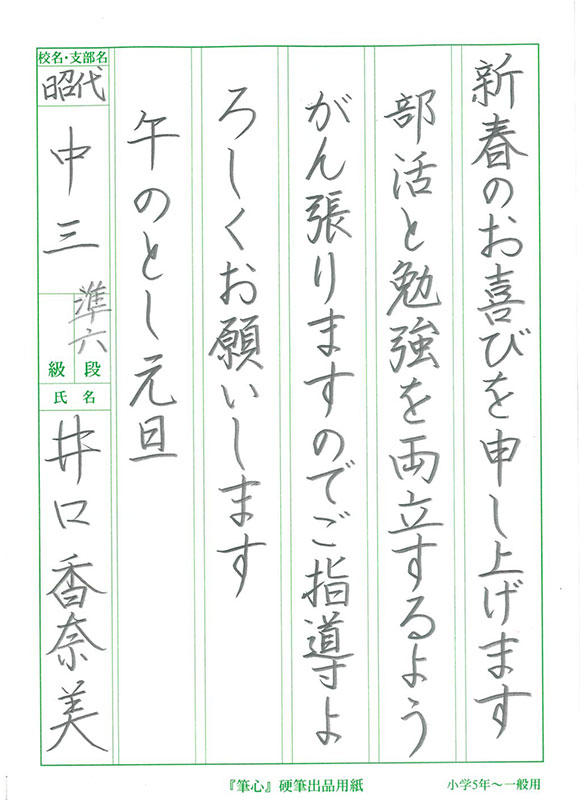 新春のお喜びを申し上げます
部活と勉強を両立するよう
がん張りますのでご指導よ
ろしくお願いします
午のとし元旦
校名・支部名
昭代
中三
準六
段
級
氏名
井口香奈美
『筆心』硬筆出品用紙
小学5年〜一般用